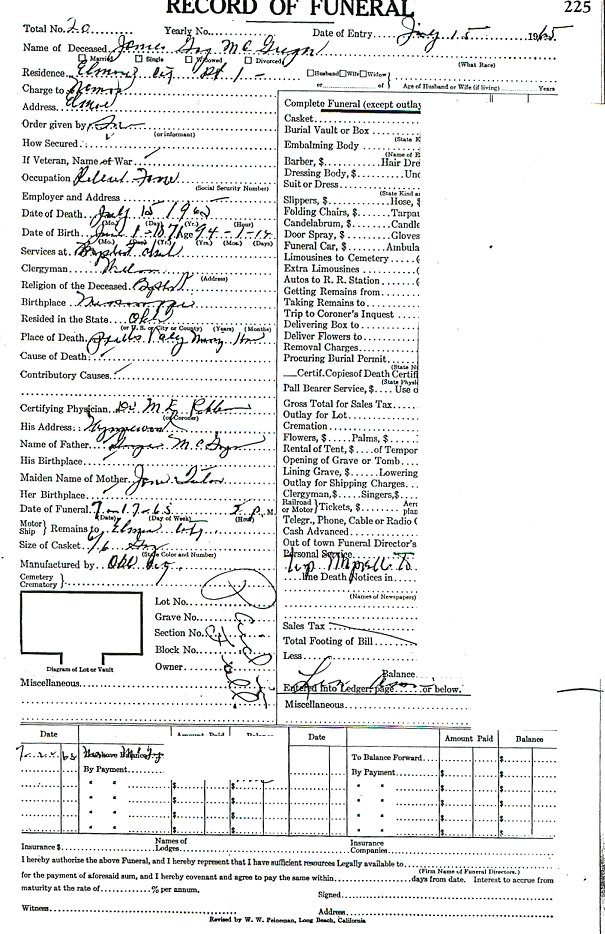 RECORD OF FUNERAL 225
Total No. 20 Yearly No. Date of Entry July 15 1965
Name of Deceased James Mc
Married Single Widowed Divorced (What Race)
Residence Elmore City Rt 1 Husband Wife Widow
or of Age of Husband or Wife (if living) Years
Charge to
Address Elmore
Order given by
(or informant)
How Secured
If Veteran, Name of War
Occupation Retired Farmer
(Social Security Number)
Employer and Address
Date of Death July 15 196
(Mo.) (Day) (Yr.) (Hour)
Date of Birth June 1 - 187 Age 94 - 1 - 14
(Mo.) (Day) (Yr.) (Yrs.) (Mos.) (Days)
Services at Baptist
Clergyman
(Address)
Religion of the Deceased Baptist
Birthplace
Resided in the State Okla
(or U. S. or City or County) (Years) (Months)
Place of Death Pauls Valley
Cause of Death
Contributory Causes
Certifying Physician Dr. M. E.
(or Coroner)
His Address Wynnewood
Name of Father George Mc
His Birthplace
Maiden Name of Mother Jane
Her Birthplace
Date of Funeral 7-17-65 2 P. M.
(Date) (Day of Week) (Hour)
Motor Ship Remains to Elmore City
Size of Casket 6/6
(State Color and Number)
Manufactured by Okla City
Cemetery
Crematory
Lot No.
Grave No.
Section No.
Block No.
Owner
Diagram of Lot or Vault
Miscellaneous
Complete Funeral (except outlay
Casket
Burial Vault or Box
(State K
Embalming Body
(Name of E
Barber, $ Hair Dre
Dressing Body, $ Und
Suit or Dress
(State Kind a
Slippers, $ Hose, $
Folding Chairs, $ Tarpau
Candelabrum, $ Candle
Door Spray, $ Gloves
Funeral Car, $ Ambula
Limousines to Cemetery
Extra Limousines
Autos to R. R. Station
Getting Remains from
Taking Remains to
Trip to Coroner's Inquest
Delivering Box to
Deliver Flowers to
Removal Charges
Procuring Burial Permit
(State N
Certif. Copies of Death Certifi
(State Physi
Pall Bearer Service, $ Use o
Gross Total for Sales Tax
Outlay for Lot
Cremation
Flowers, $ Palms, $
Rental of Tent, $ of Tempor
Opening of Grave or Tomb
Lining Grave, $ Lowering
Outlay for Shipping Charges
Clergyman, $ Singers, $
Railroad or Motor Tickets, $ Aer plan
Telegr., Phone, Cable or Radio C
Cash Advanced
Out of town Funeral Director's
Personal Service
Line Death Notices in
(Names of Newspapers)
Sales Tax
Total Footing of Bill
Less
Balance
Entered into Ledger, page or below.
Miscellaneous
Date Amount Paid Balance Date Amount Paid Balance
To Balance Forward $
By Payment $ $ By Payment $ $
" " $ $ " " $ $
" " $ $ " " $ $
" " $ $ " " $ $
Insurance $ Names of Lodges Insurance Companies
I hereby authorize the above Funeral, and I hereby represent that I have sufficient resources Legally available to
(Firm Name of Funeral Directors.)
for the payment of aforesaid sum, and I hereby covenant and agree to pay the same within days from date. Interest to accrue from
maturity at the rate of % per annum. Signed
Witness Address
Revised by W. W. Feineman, Long Beach, California